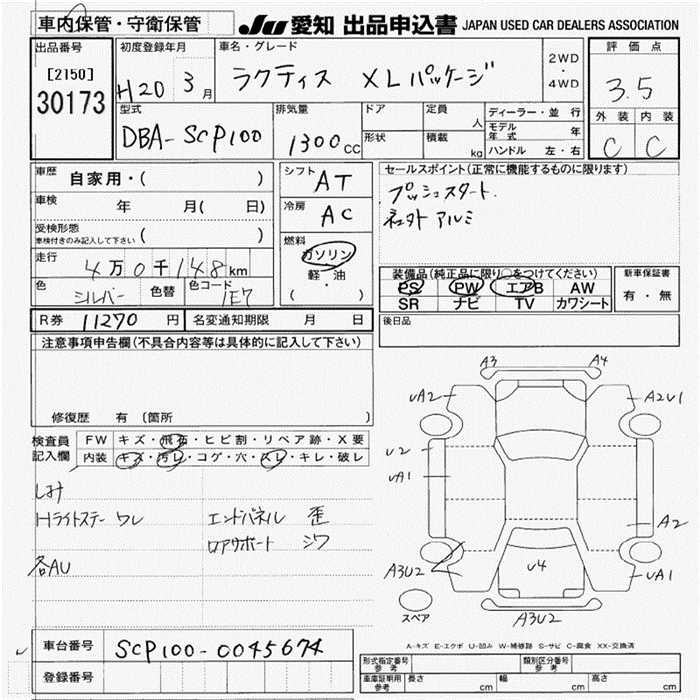 車内保管・守衛保管
JU 愛知 出品申込書 JAPAN USED CAR DEALERS ASSOCIATION
出品番号
[2150]
30173
初度登録年月
H20 3月
車名・グレード
ラクティス XLパッケージ
2WD
・
4WD
評価点
3.5
外装 内装
C C
型式
DBA-SCP100
排気量
1300cc
ドア
形状
定員 人
積載 kg
ディーラー・並行
モデル年式 年
ハンドル 左・右
車歴 自家用・( )
車検 年 月( 日)
受検形態
車検付きのみ記入して下さい ( )
走行 4万0千148km
色 シルバー 色替 色コード 1E7
シフト AT
冷房 AC
燃料
ガソリン
軽・油
( )
セールスポイント(正常に機能するものに限ります)
プッシュスタート.
社外アルミ
装備品(純正品に限り○をつけてください)
PS PW エアB AW
SR ナビ TV カワシート
新車保証書
有・無
R券 11270 円 名変通知期限 月 日
後日品
注意事項申告欄(不具合内容等は具体的に記入して下さい)
修復歴 有 (箇所 )
検査員記入欄
FW キズ・飛石・ヒビ割・リペア跡・X要
内装 キズ・汚レ・コゲ・穴・スレ・キレ・破レ
しみ
Hライトステー ワレ エンドパネル 歪
ロアサポート シワ
各AU
A3 A4
UA2 A2U1
U2
UA1
A2
A3U2 U4 UA1
スペア
A3U2
A-キズ E-エクボ U-凹み W-補修跡 S-サビ C-腐食 XX-交換済
車台番号 SCP100-0045674
登録番号
形式指定番号 参考 類別区分番号 参考
車庫証明用 参考 長さ cm 幅 cm 高さ cm